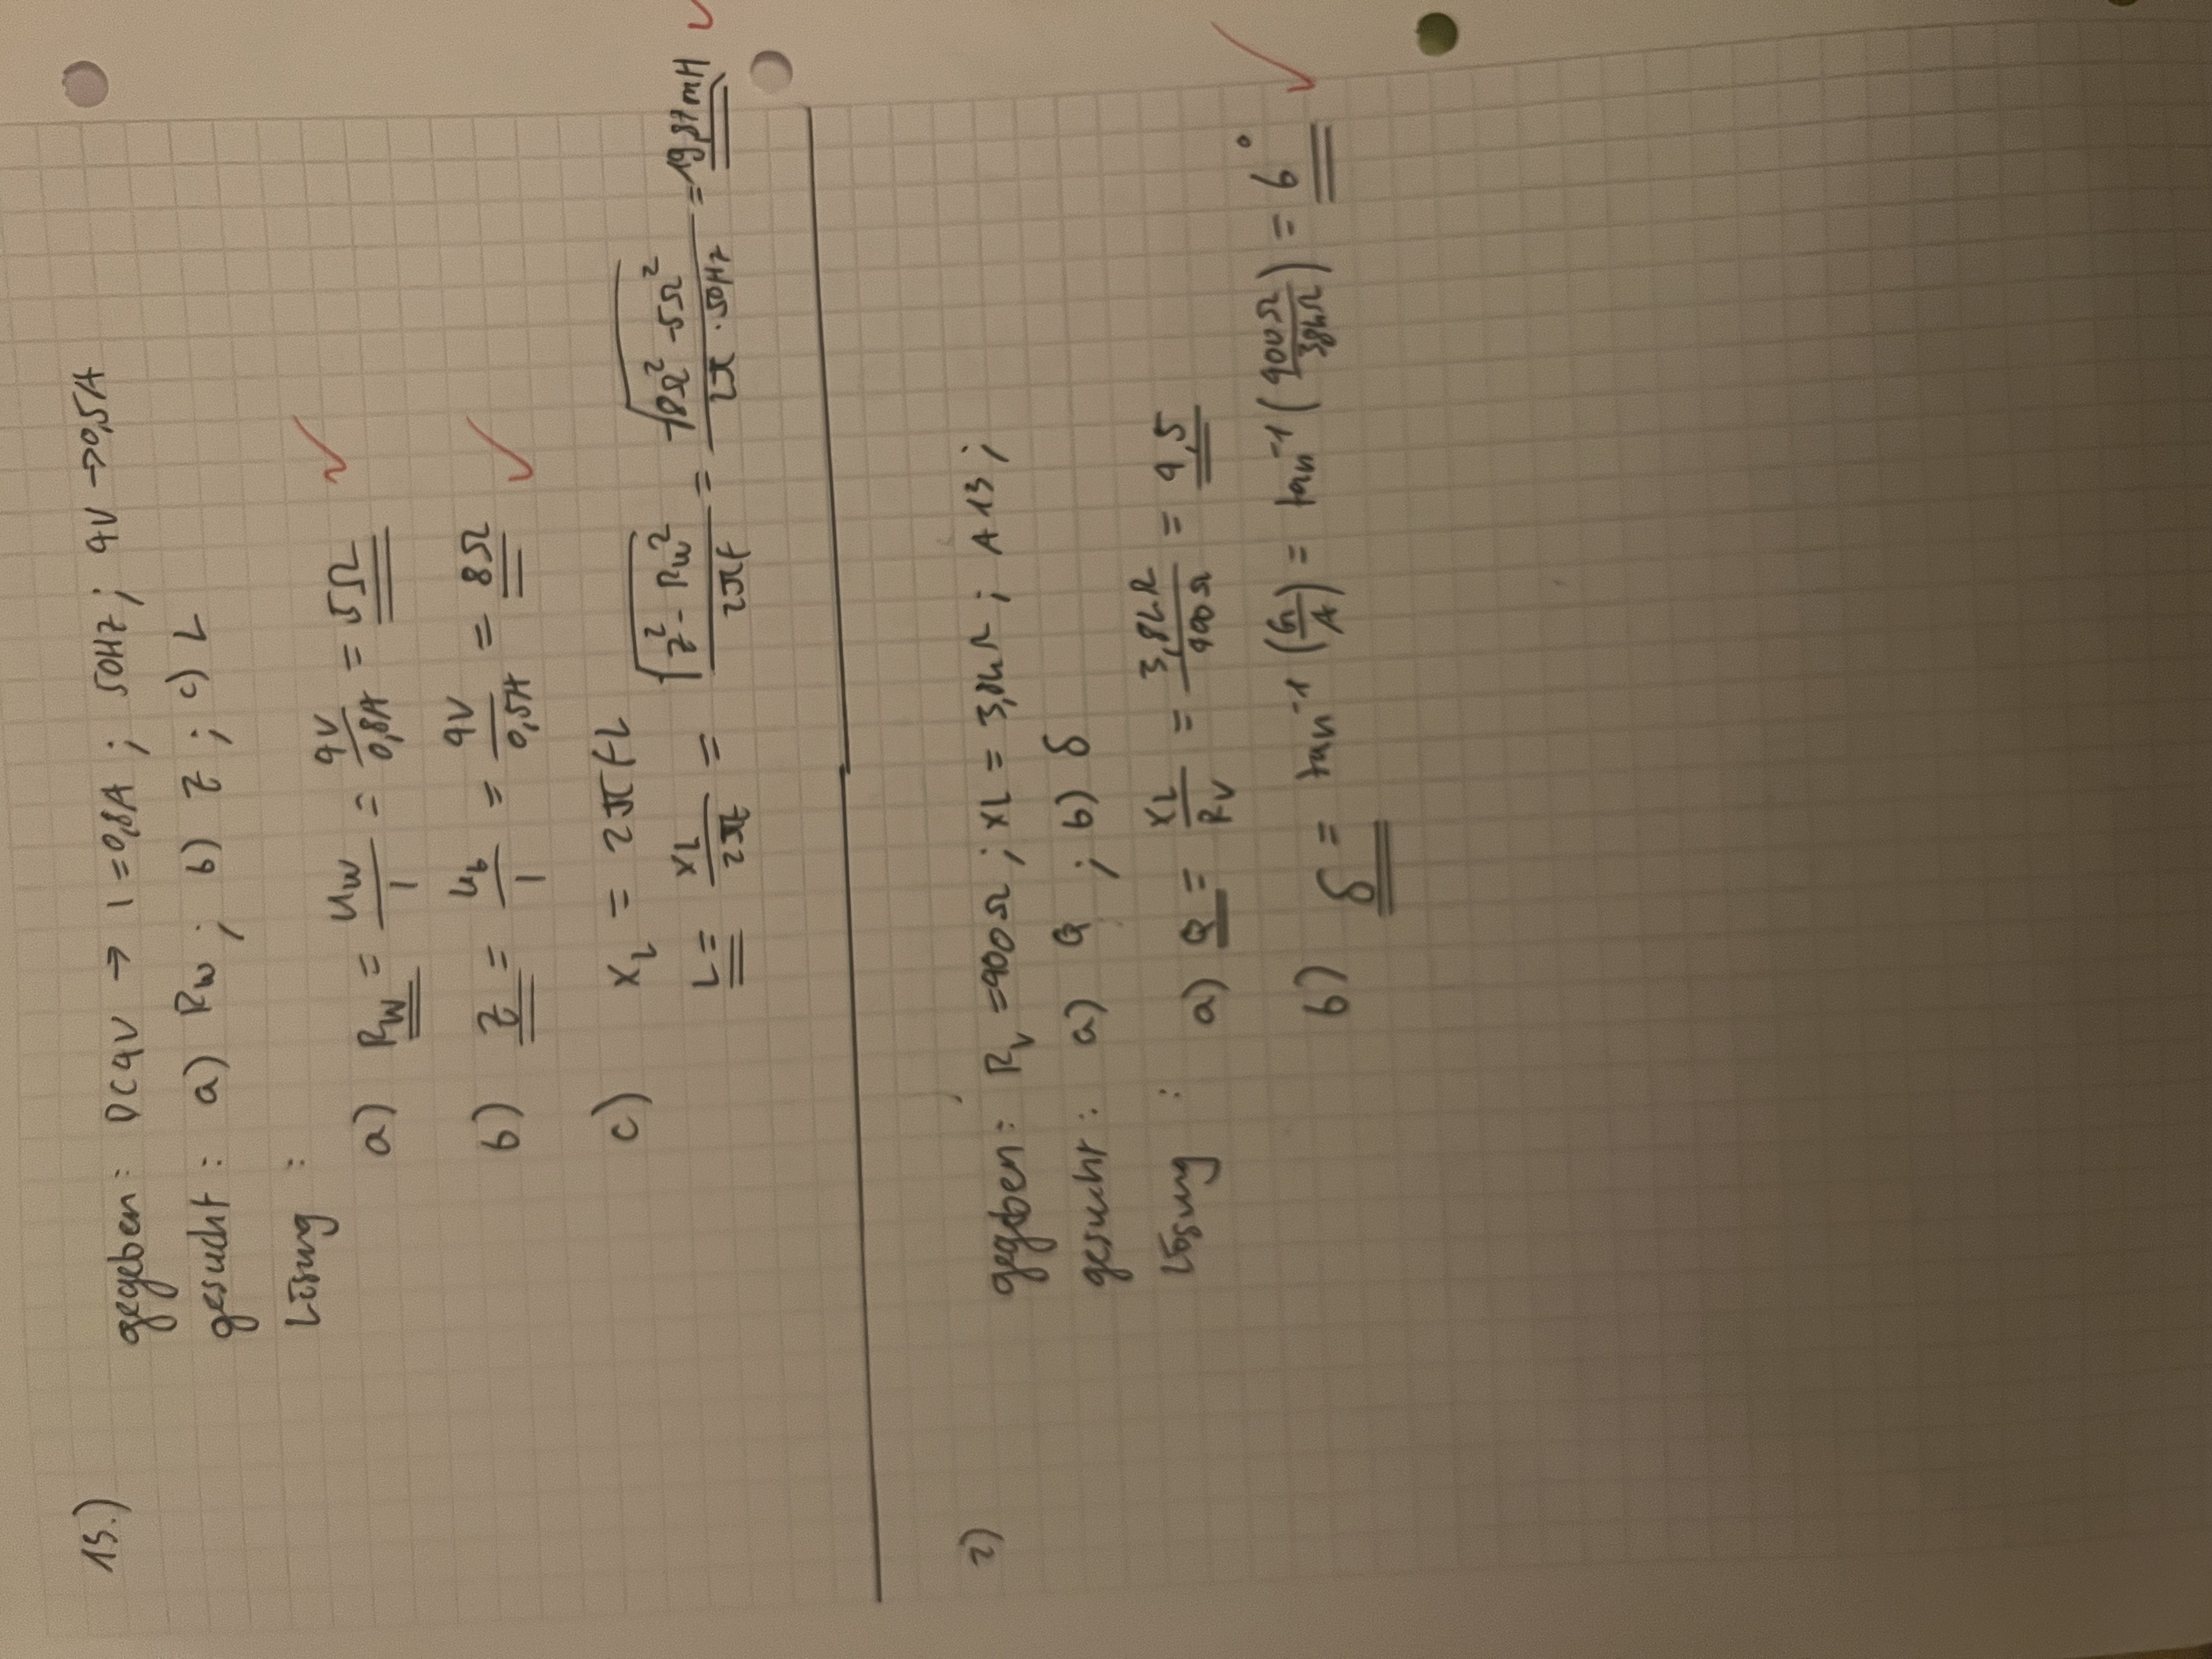 15.)
gegeben: DC 4V → I = 0,8A ; 50Hz ; 4V → 0,5A
gesucht : a) Rw ; b) Z ; c) L
Lösung :
a) Rw = Uw/I = 4V/0,8A = 5Ω
b) Z = Ub/I = 4V/0,5A = 8Ω
c) XL = 2πfL
L = XL/2πf = √(Z² - Rw²)/2πf = √(8Ω² - 5Ω²)/2π · 50Hz = 19,87mH
2)
gegeben: Rv = 400Ω ; XL = 3,8kΩ ; A 13 ;
gesucht : a) Q ; b) δ
Lösung :
a) Q = XL/RV = 3,8kΩ/400Ω = 9,5
b) δ = tan⁻¹ (G/A) = tan⁻¹ (400Ω/3,8kΩ) = 6°